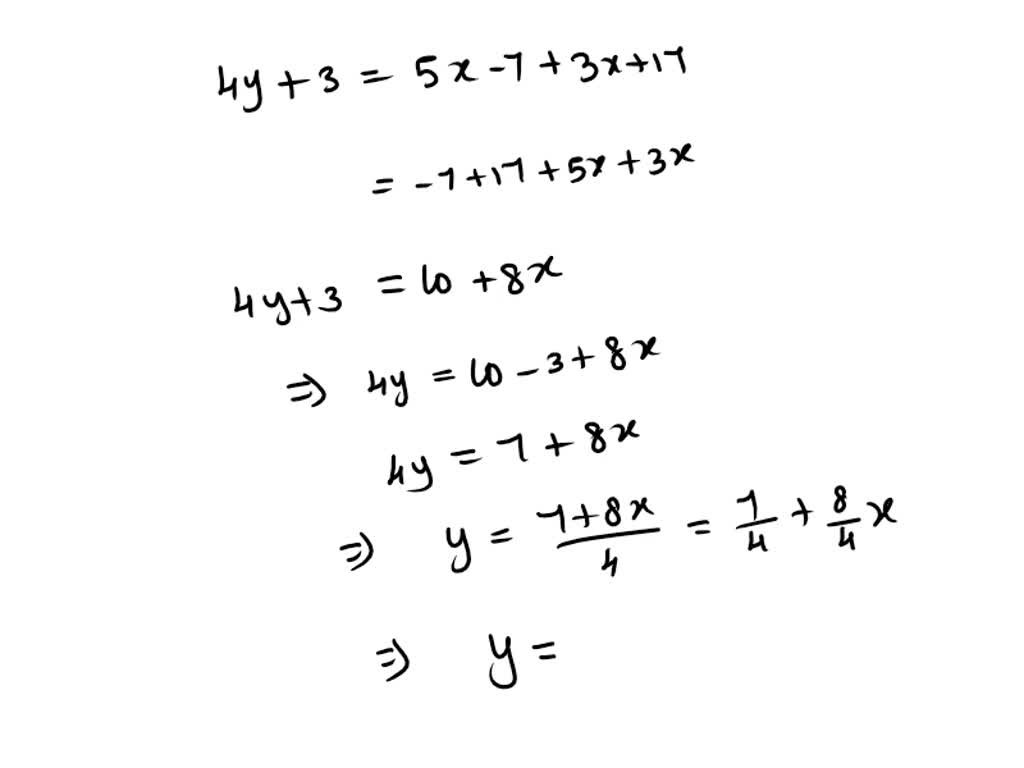 4y + 3 = 5x - 7 + 3x + 17
= -7 + 17 + 5x + 3x
4y + 3 = 10 + 8x
⇒ 4y = 10 - 3 + 8x
4y = 7 + 8x
⇒ y = \frac{7 + 8x}{4} = \frac{7}{4} + \frac{8}{4}x
⇒ y =